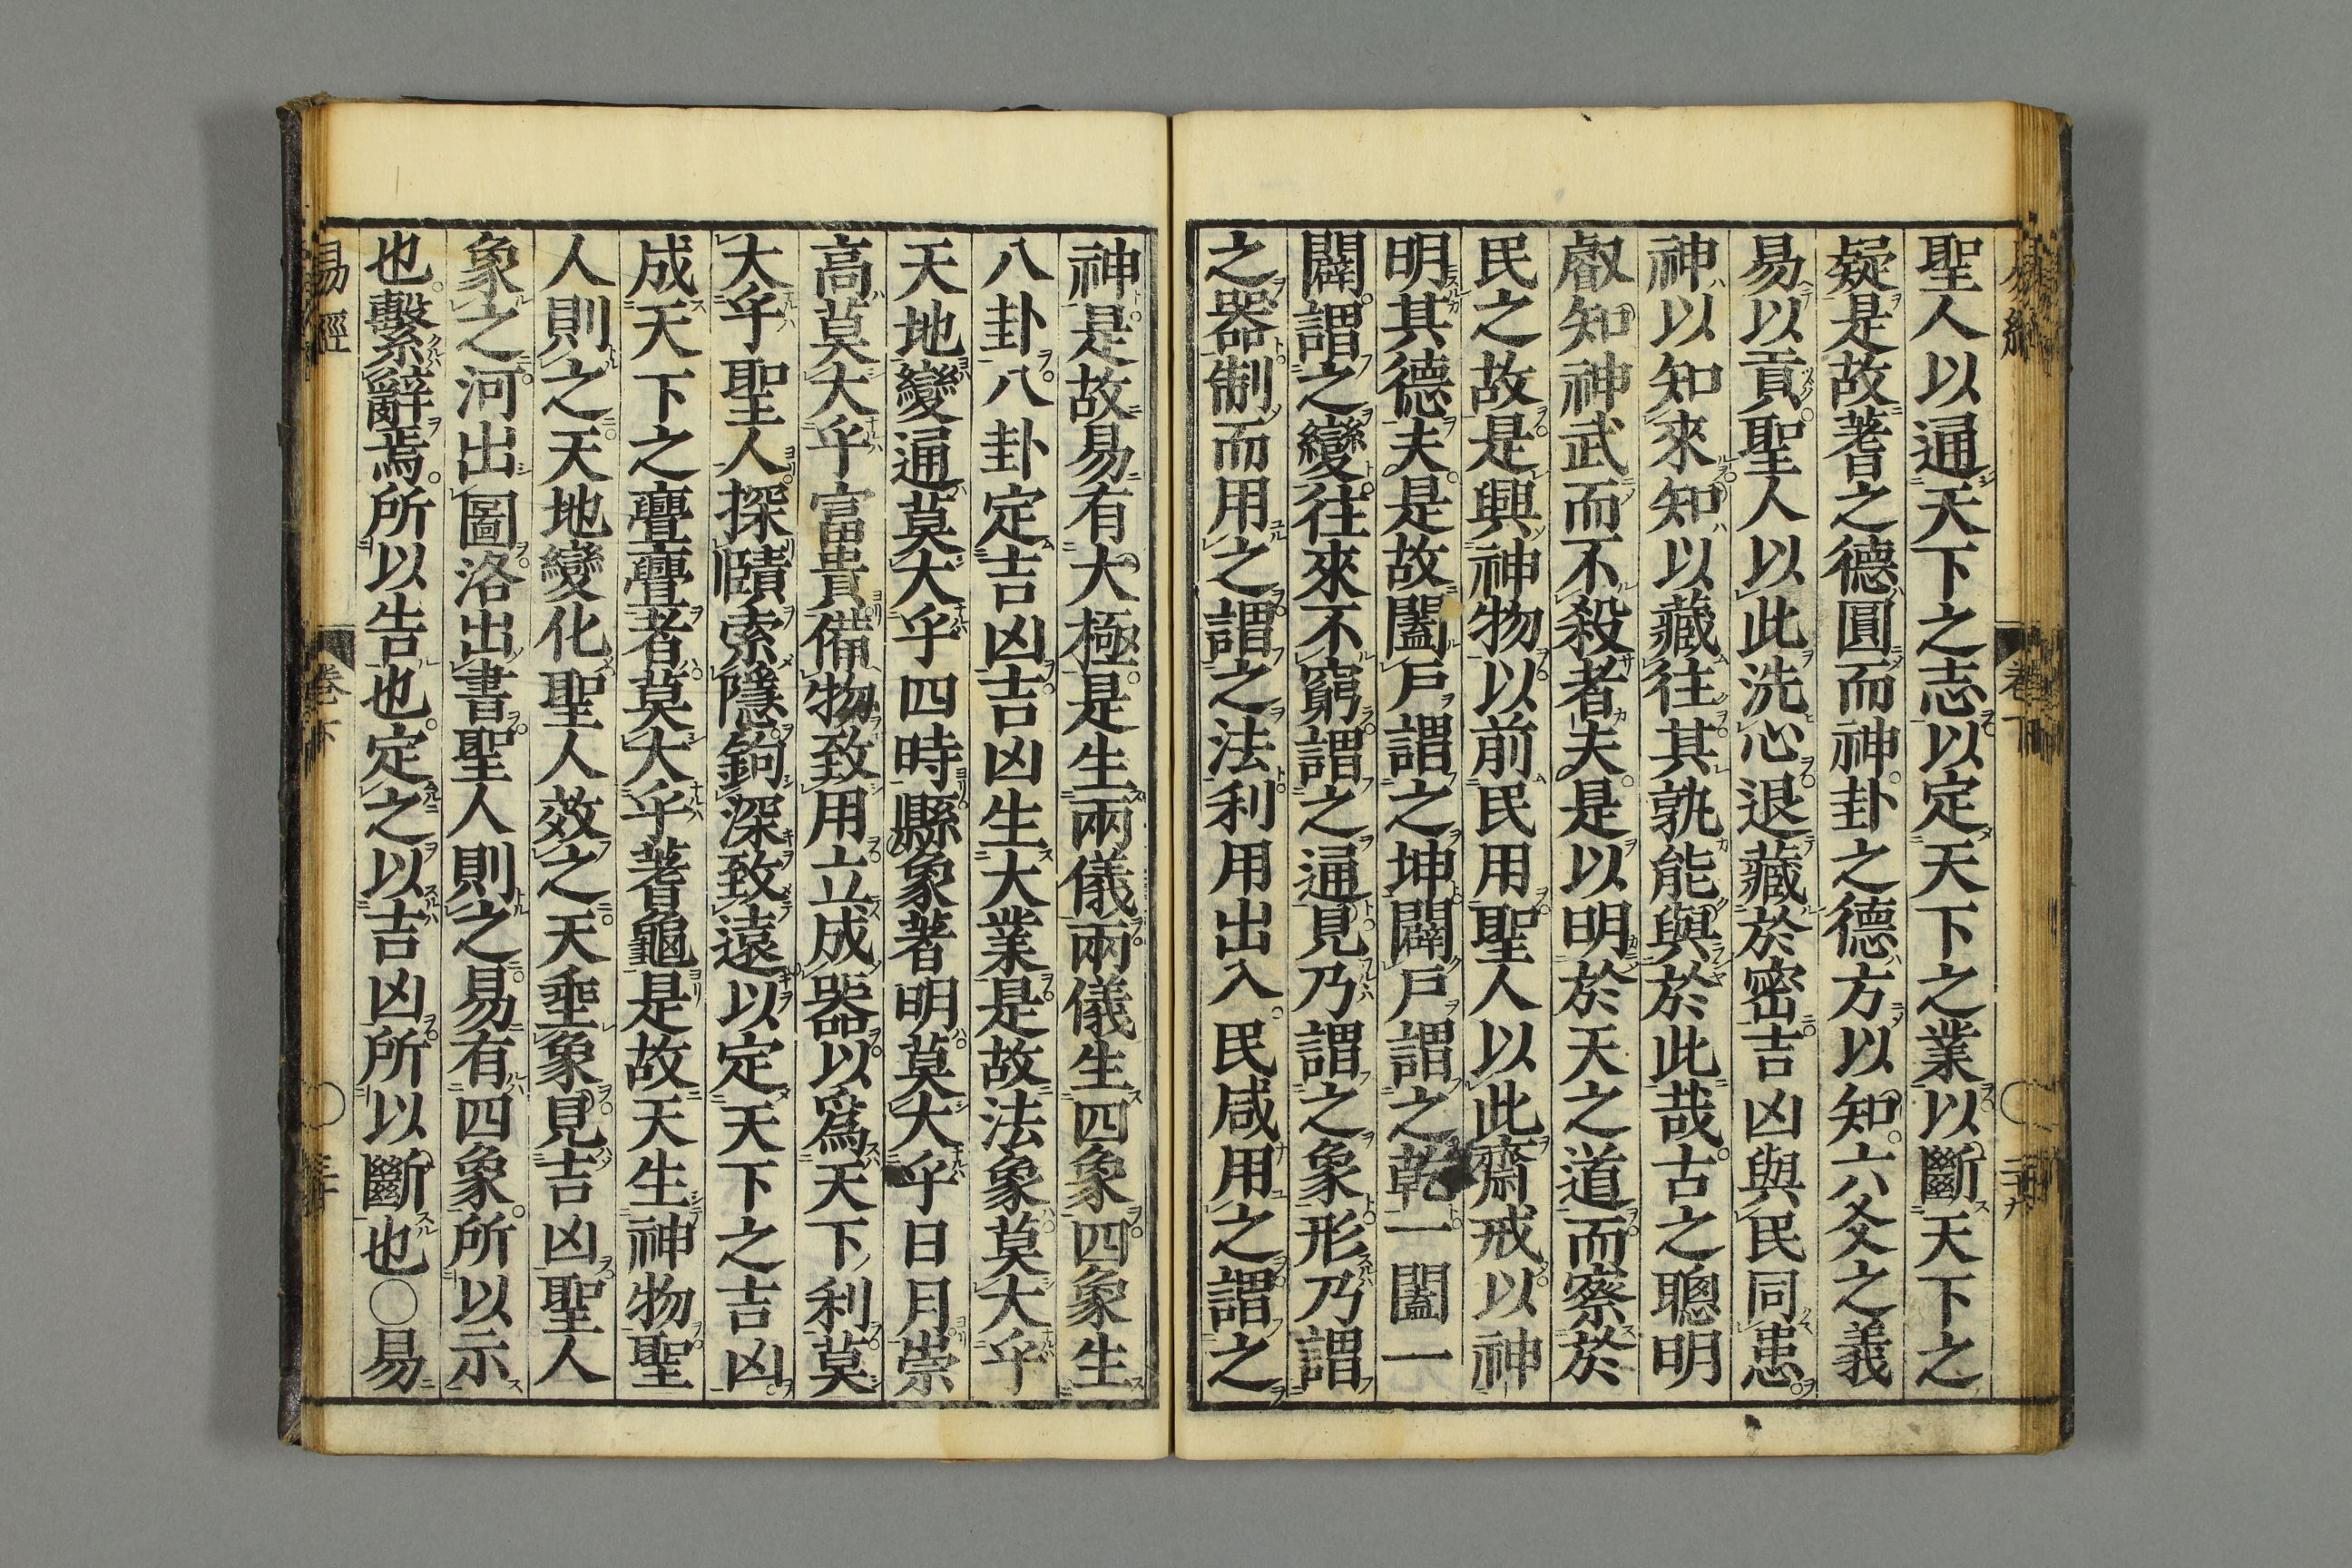 聖人以通天下之志以定天下之業以斷天下之
疑是故蓍之德圓而神卦之德方以知六爻之義
易以貢聖人以此洗心退藏於密吉凶與民同患
神以知來知以藏往其孰能與於此哉古之聰明
叡知神武而不殺者夫是以明於天之道而察於
民之故是興神物以前民用聖人以此齋戒以神
明其德夫是故闔戶謂之坤闢戶謂之乾一闔一
闢謂之變往來不窮謂之通見乃謂之象形乃謂
之器制而用之謂之法利用出入民咸用之謂之
神是故易有大極是生兩儀兩儀生四象四象生
八卦八卦定吉凶吉凶生大業是故法象莫大乎
天地變通莫大乎四時縣象著明莫大乎日月崇
高莫大乎富貴備物致用立成器以爲天下利莫
大乎聖人探賾索隱鉤深致遠以定天下之吉凶
成天下之亹亹者莫大乎蓍龜是故天生神物聖
人則之天地變化聖人效之天垂象見吉凶聖人
象之河出圖洛出書聖人則之易有四象所以示
也繫辭焉所以告也定之以吉凶所以斷也○易
易經 卷下